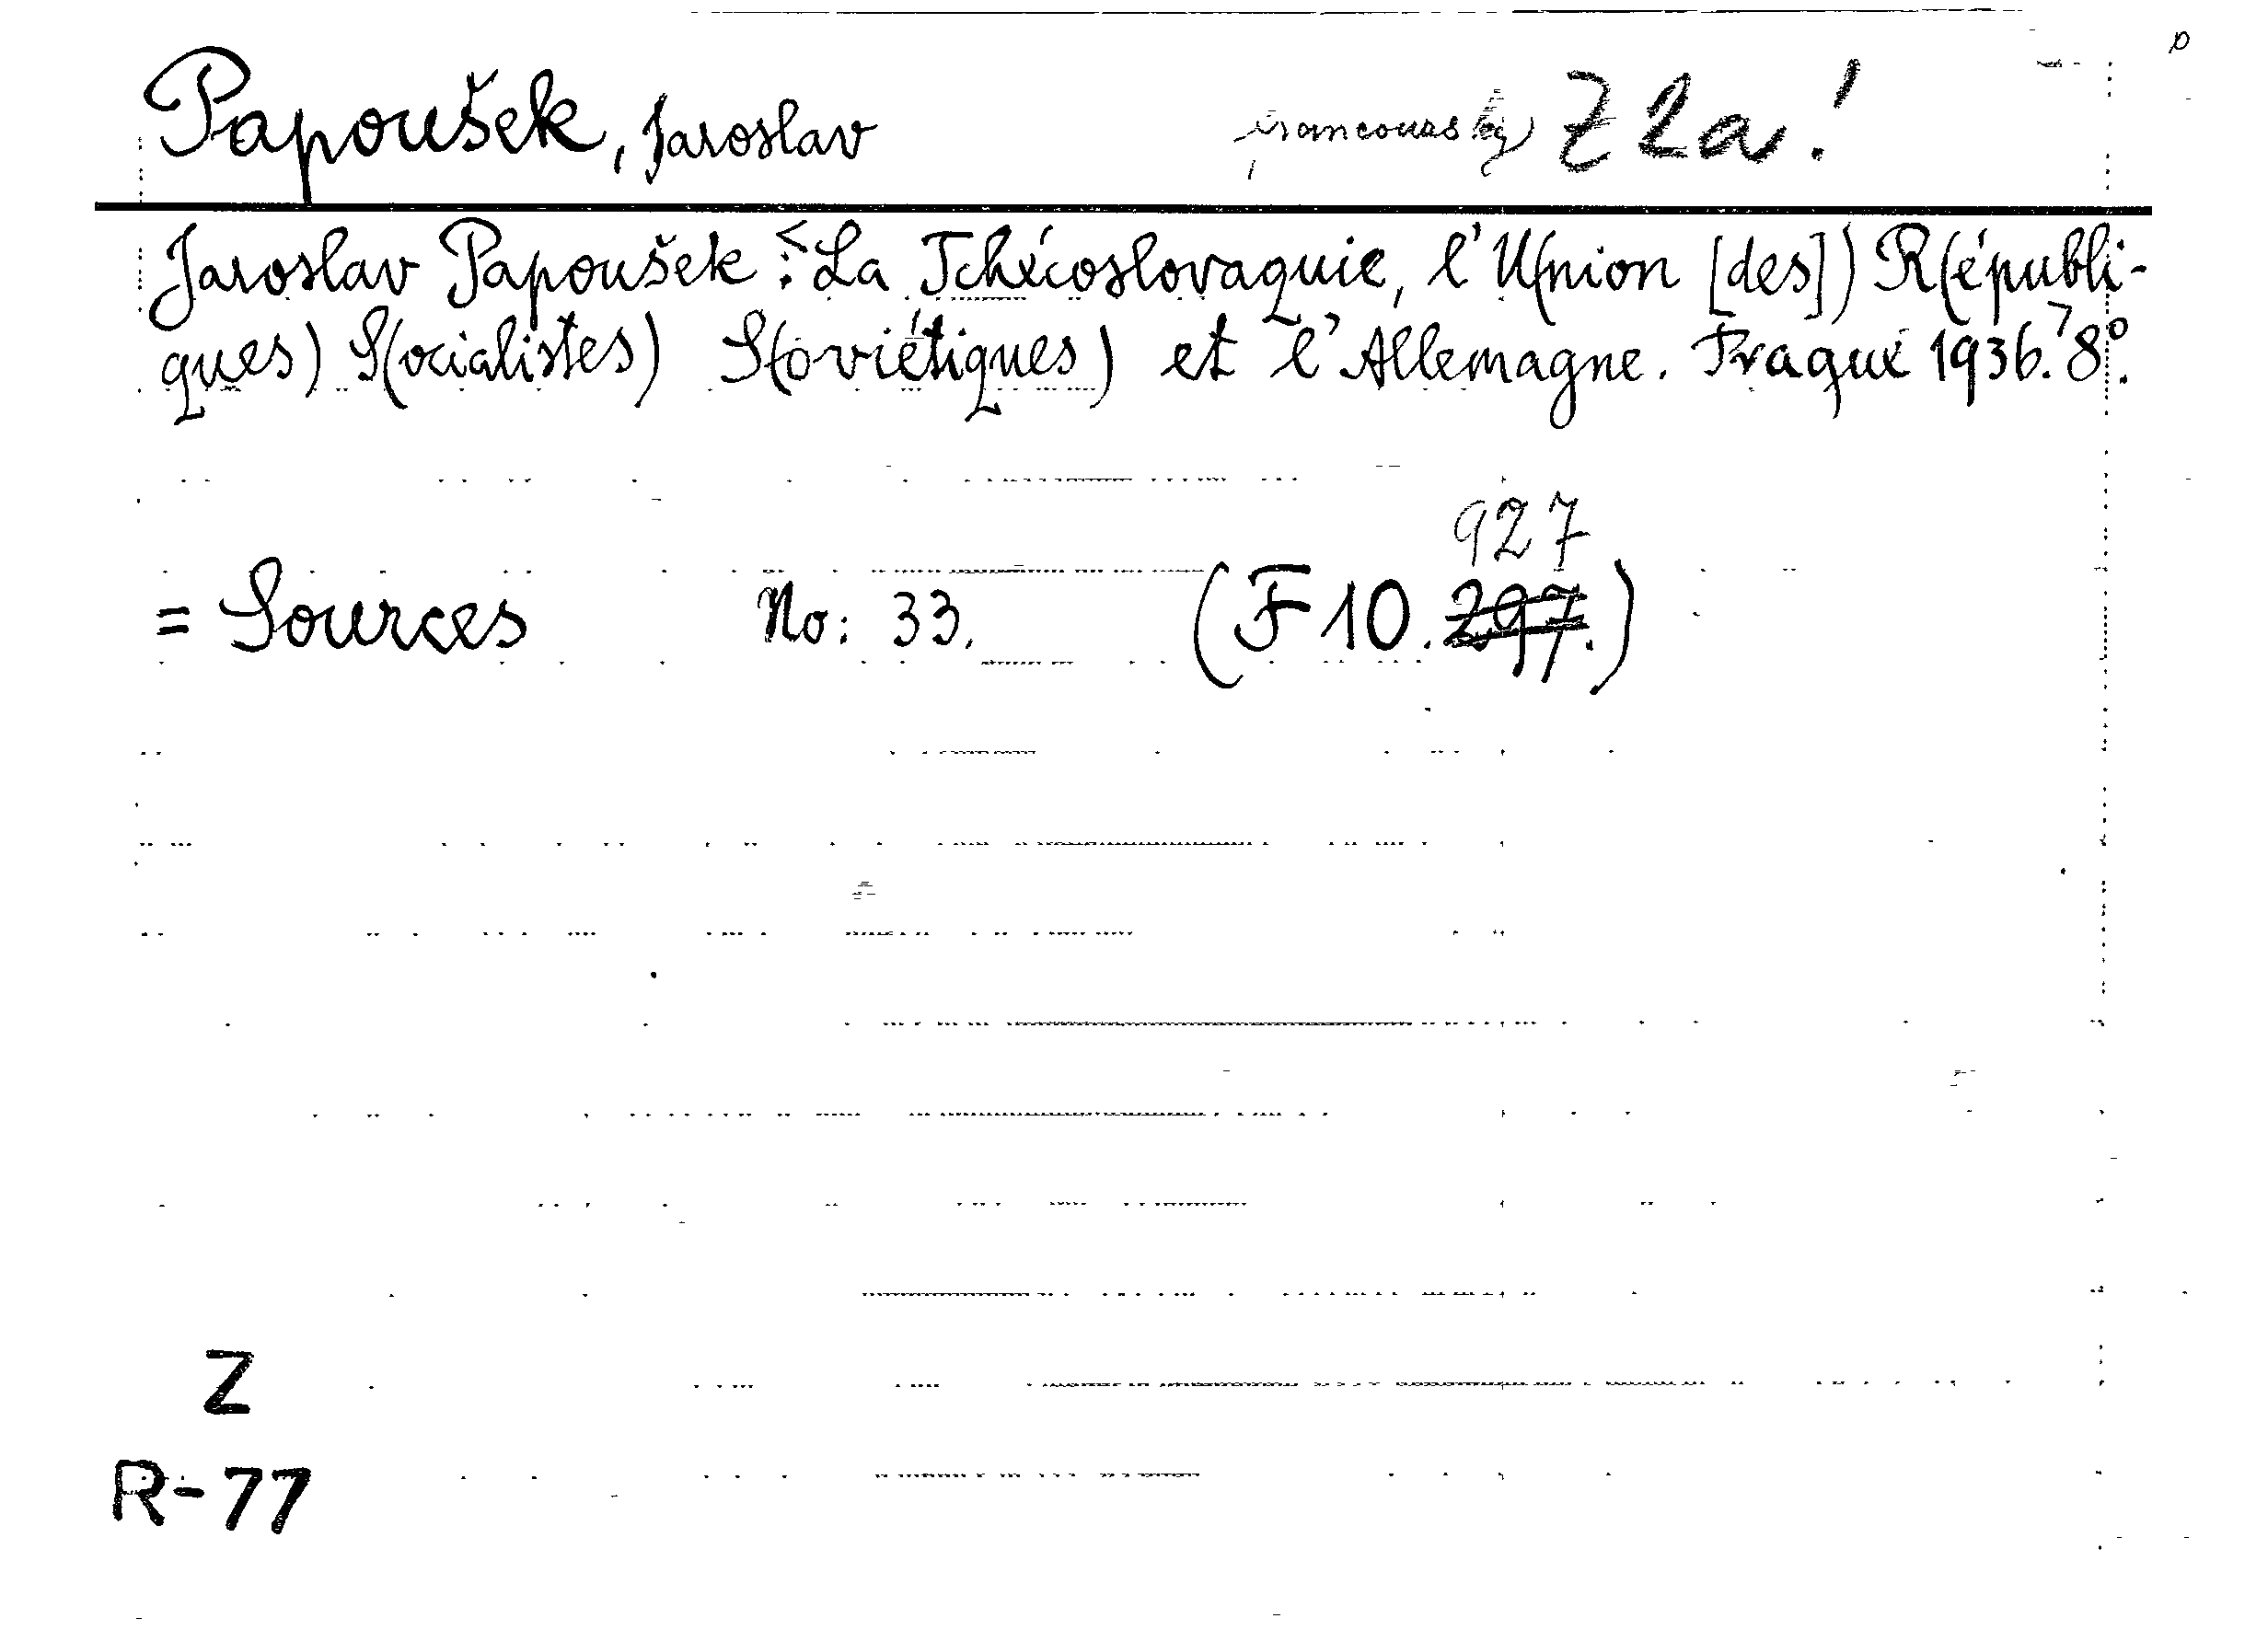 Papoušek, Jaroslav francouzsky Z 2a!
Jaroslav Papoušek : <La Tchécoslovaquie, l'U(nion [des]) R(épubli-
ques) S(ocialistes) S(oviétiques) et l'Allemagne. Prague 1936.> 8°.
927
= Sources No: 33. (F 10.297.)
Z
R-77